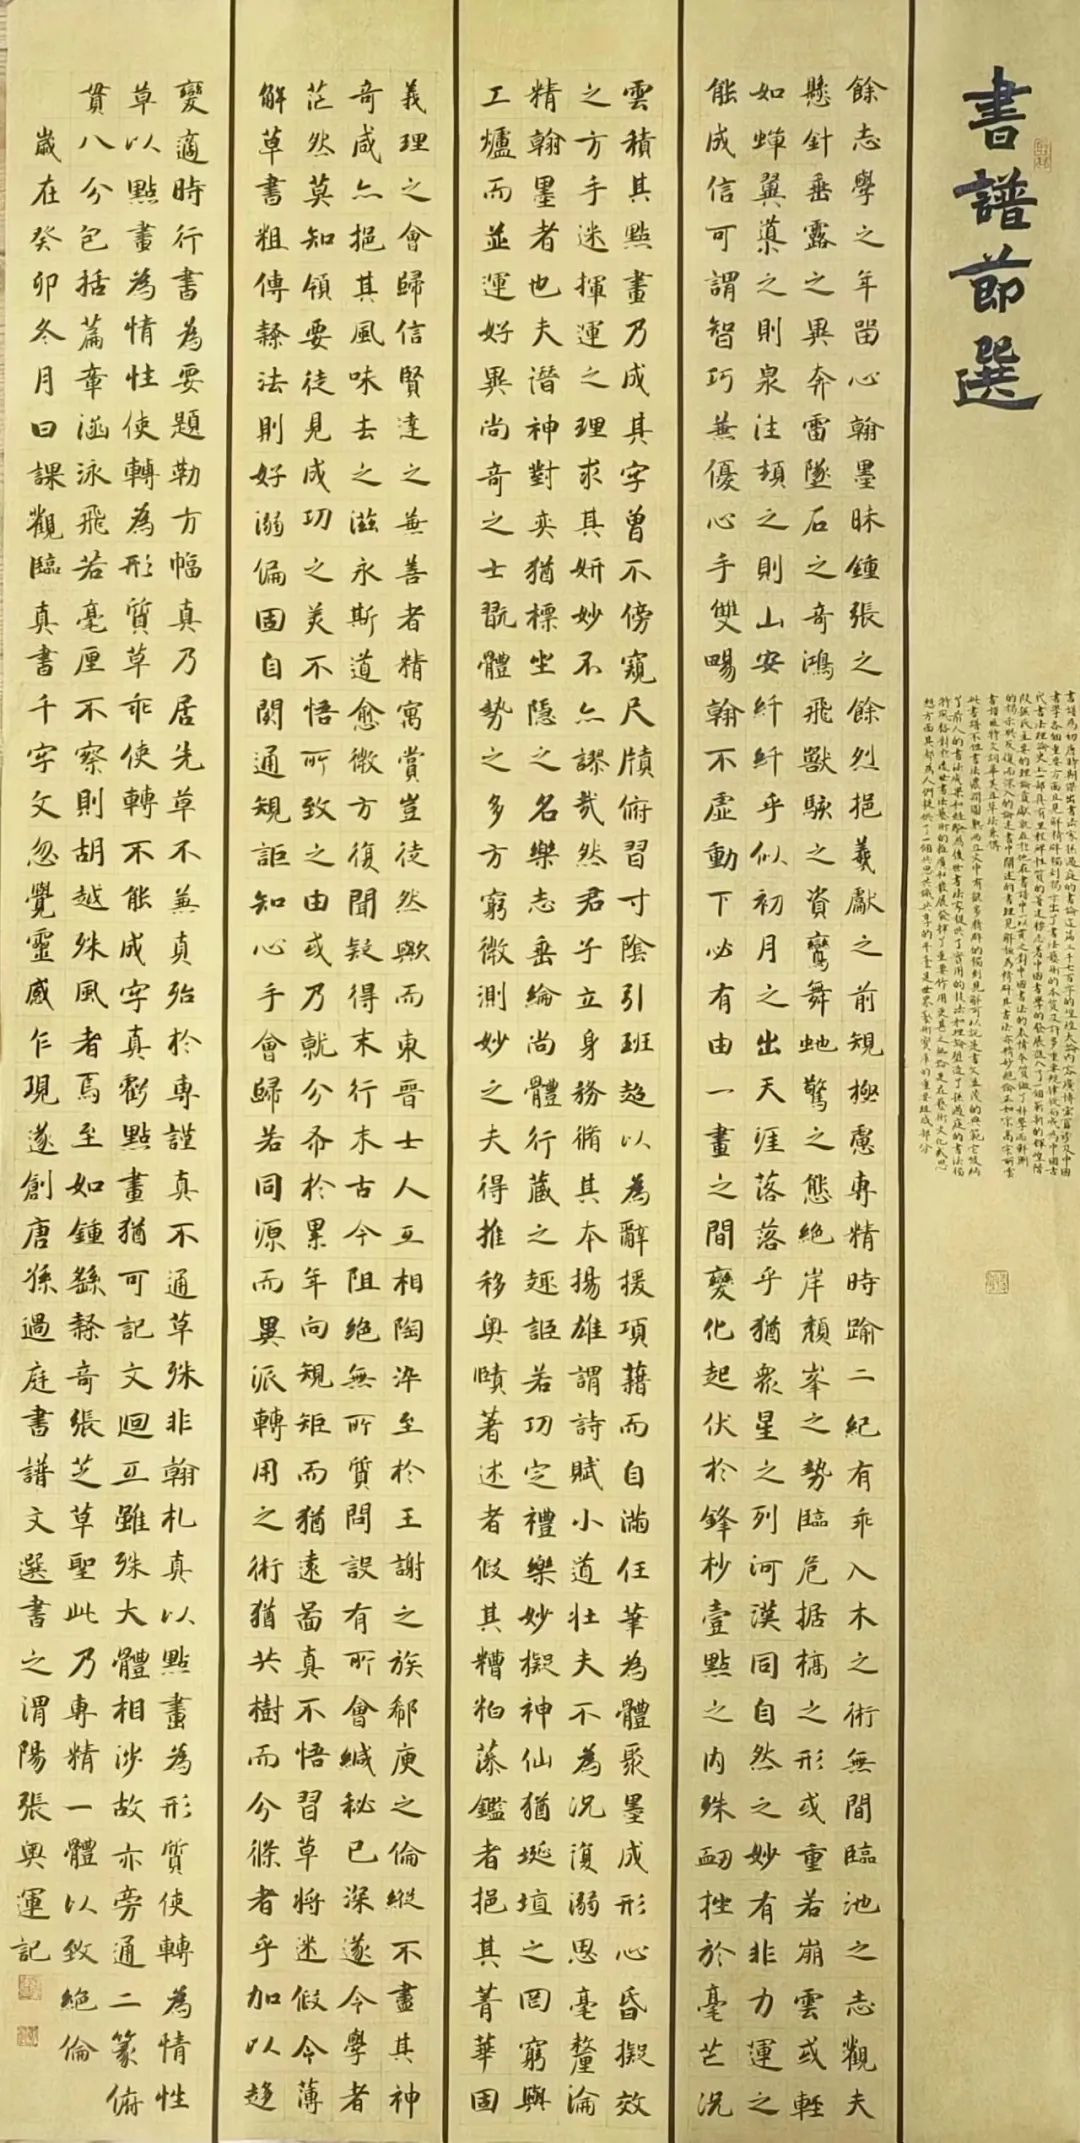 書譜節選
書譜為初唐時期傑出書法家孫過庭的書論這篇三千七百字的煌煌大論內容廣博宏富涉及中國
書學各個重要方面且見解精辟獨到揭示出了書法藝術的本質及許多重要規律從而成為中國古
代書法理論史上一部具有里程碑性質的著述標志著中國書學的發展進入了一個嶄新的輝煌階
餘志學之年畱心翰墨昧鍾張之餘烈挹羲獻之前規極慮專精時踰二紀有乖入木之術無間臨池之志觀夫
懸針垂露之異奔雷墜石之奇鴻飛獸駭之資鸞舞虵驚之態絕岸頹峯之勢臨危据槁之形或重若崩雲或輕
如蟬翼導之則泉注頓之則山安纖纖乎似初月之出天涯落落乎猶眾星之列河漢同自然之妙有非力運之
能成信可謂智巧兼優心手雙暢翰不虛動下必有由一畫之間變化起伏於鋒杪壹點之內殊衄挫於毫芒況
雲積其點畫乃成其字曾不傍窺尺牘俯習寸陰引班超以為辭援項藉而自滿任筆為體聚墨成形心昏擬效
之方手迷揮運之理求其妍妙不亦謬哉然君子立身務脩其本揚雄謂詩賦小道壯夫不為況復溺思毫釐淪
精翰墨者也夫潛神對奕猶標坐隱之名樂志垂綸尚體行藏之趣詎若功定禮樂妙擬神仙猶埏埴之罔窮與
工爐而並運好異尚奇之士翫體勢之多方窮微測妙之夫得推移奧賾著述者假其糟粕藻鑑者挹其菁華固
義理之會歸信賢達之兼善者精寓賞豈徒然歟而東晉士人互相陶淬至於王謝之族郗庾之倫縱不盡其神
奇咸亦挹其風味去之滋永斯道愈微方復聞疑得末行末古今阻絕無所質問設有所會緘秘已深遂令學者
茫然莫知領要徒見成功之美不悟所致之由或乃就分布於累年向規矩而猶遠圖真不悟習草將迷假令薄
解草書粗傳隸法則好溺偏固自閡通規詎知心手會歸若同源而異派轉用之術猶共樹而分條者乎加以趨
變適時行書為要題勒方幅真乃居先草不兼真殆於專謹真不通草殊非翰札真以點畫為形質使轉為情性
草以點畫為情性使轉為形質草乖使轉不能成字真虧點畫猶可記文迴互雖殊大體相涉故亦旁通二篆俯
貫八分包括篇章涵泳飛若毫厘不察則胡越殊風者焉至如鍾繇隸奇張芝草聖此乃專精一體以致絕倫
歲在癸卯冬月日課觀臨真書千字文忽覺靈感乍現遂創唐孫過庭書譜文選書之渭陽張奧運記